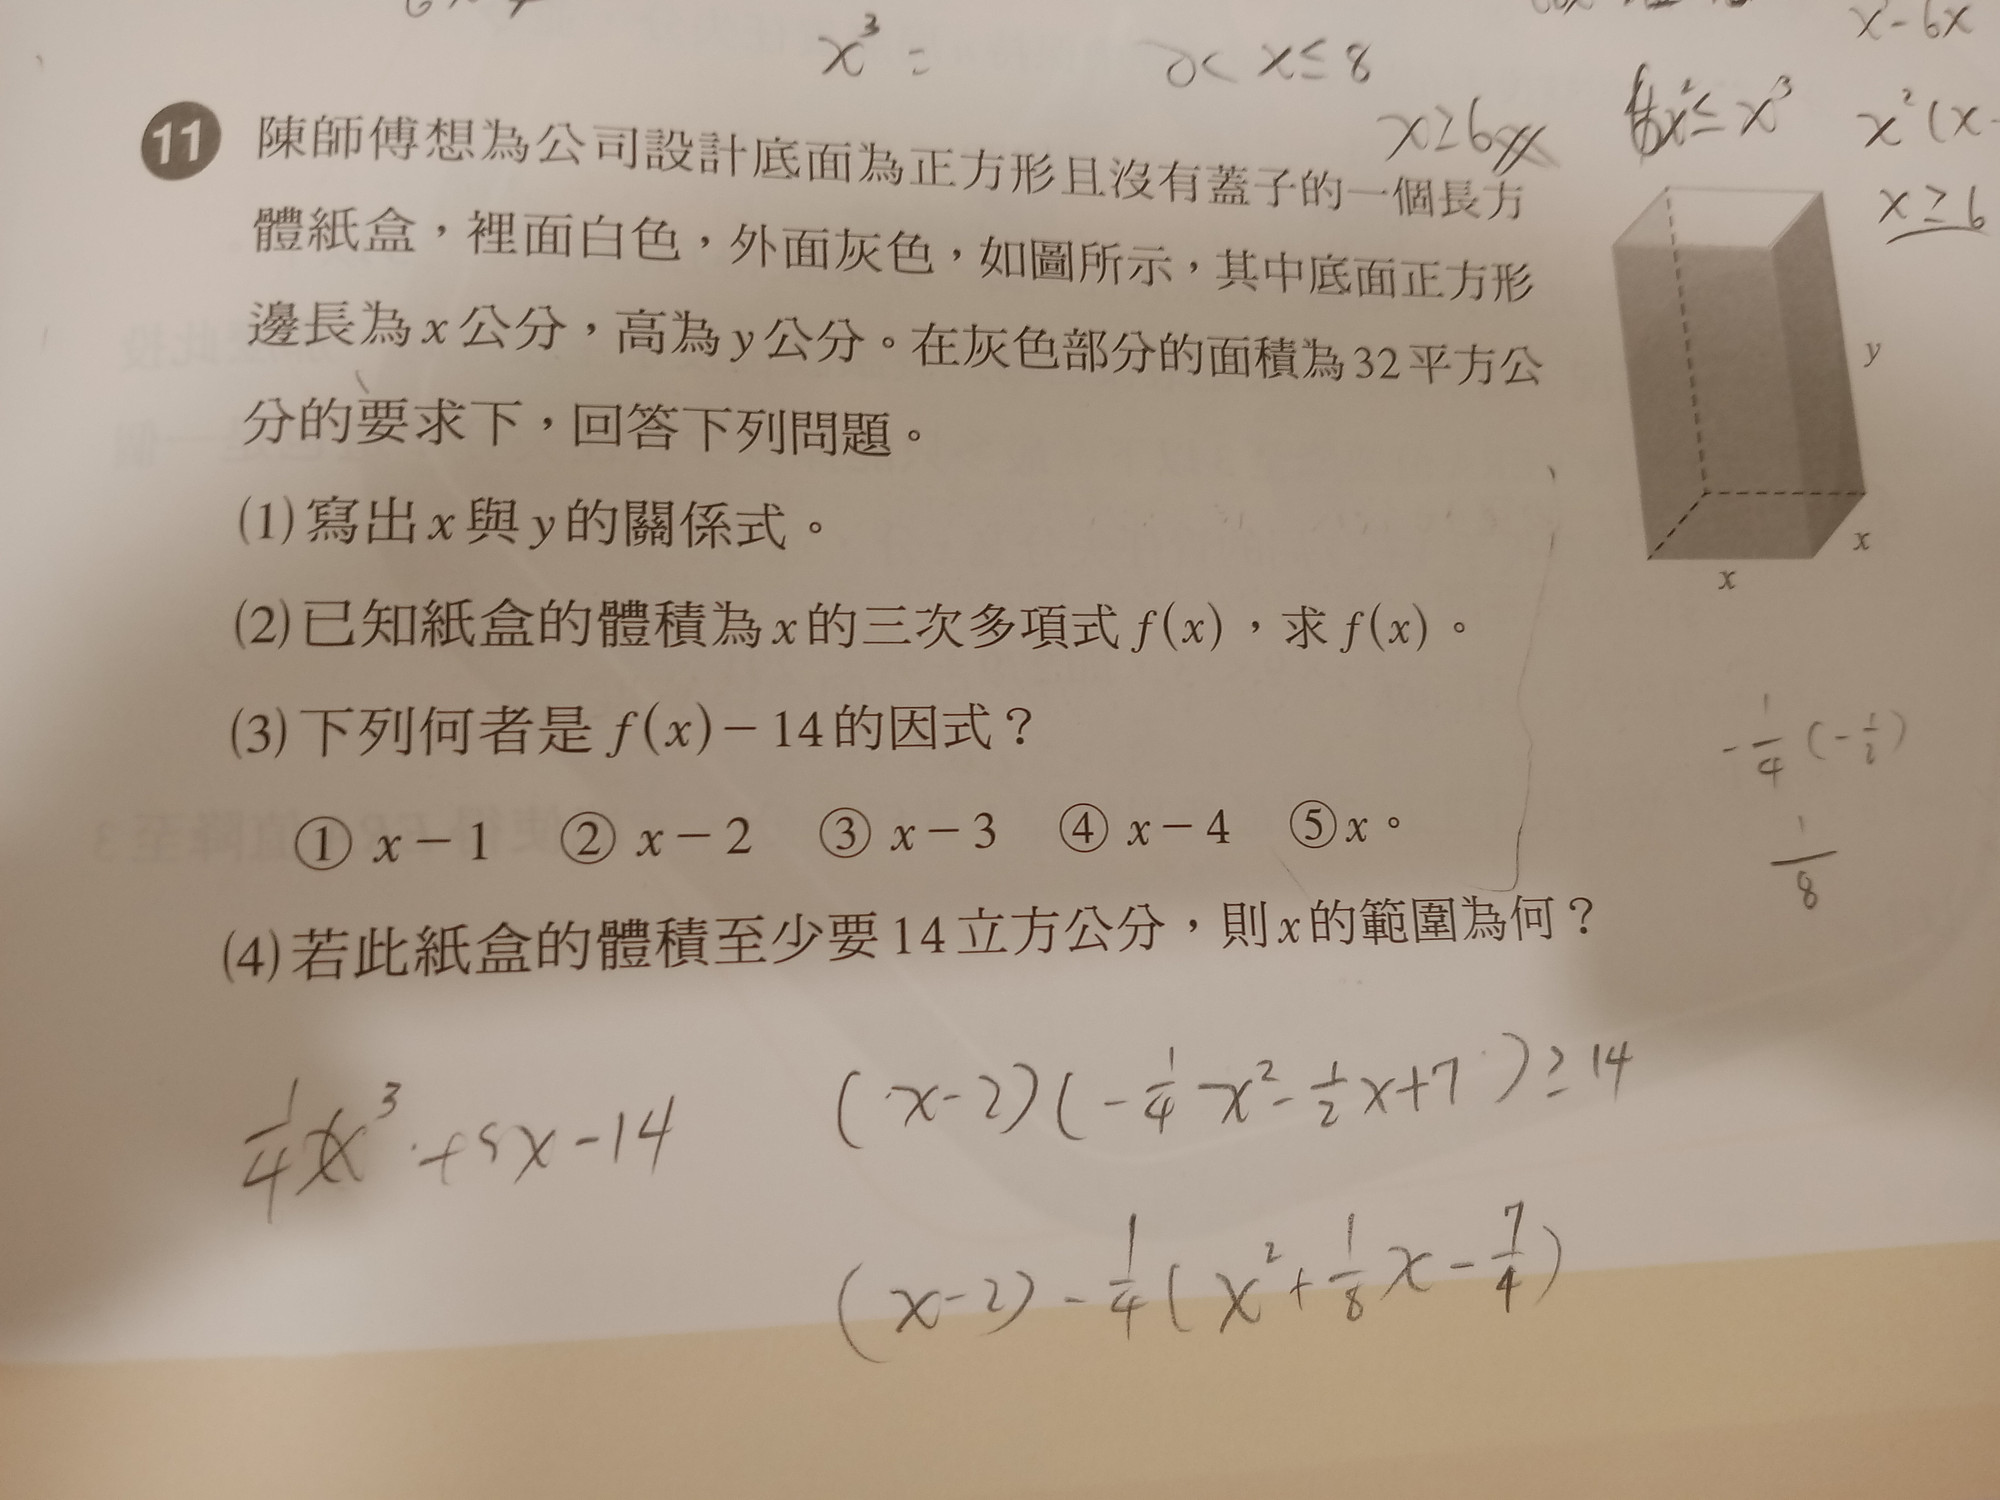 x³ =
2 < x ≤ 8
x²-6x
x≥6
6x² ≤ x³
x²(x-
x ≥ 6
11 陳師傅想為公司設計底面為正方形且沒有蓋子的一個長方
體紙盒，裡面白色，外面灰色，如圖所示，其中底面正方形
邊長為x公分，高為y公分。在灰色部分的面積為32平方公
分的要求下，回答下列問題。
y
x
x
(1)寫出x與y的關係式。
(2)已知紙盒的體積為x的三次多項式f(x)，求f(x)。
(3)下列何者是f(x)－14的因式？
① x－1 ② x－2 ③ x－3 ④ x－4 ⑤x。
-1/4(-1/2)
1/8
(4)若此紙盒的體積至少要14立方公分，則x的範圍為何？
1/4x³+8x-14
(x-2)(-1/4x²-1/2x+7)≥14
(x-2)-1/4(x²+1/8x-7/4)